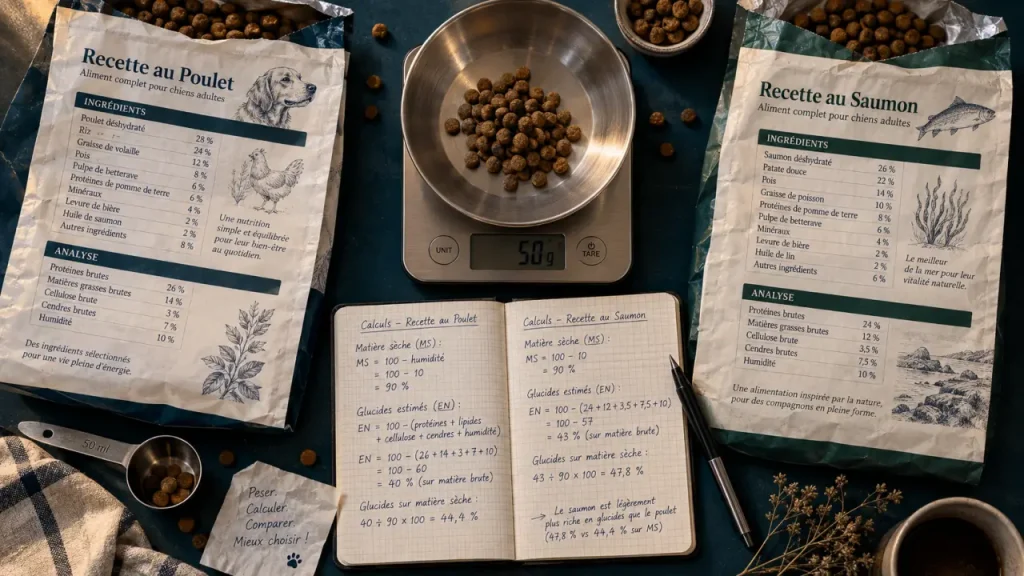 Recette au Poulet
Aliment complet pour chiens adultes
INGRÉDIENTS
Poulet déshydraté 28 %
Riz 24 %
Graisse de volaille 12 %
Pois 8 %
Pulpe de betterave 6 %
Protéines de pomme de terre 6 %
Minéraux 4 %
Levure de bière 2 %
Huile de saumon 2 %
Autres ingrédients 8 %
Une nutrition
simple et équilibrée
pour leur bien-être
au quotidien.
ANALYSE
Protéines brutes 26 %
Matières grasses brutes 14 %
Cellulose brute 3 %
Cendres brutes 7 %
Humidité 10 %
Des ingrédients sélectionnés
pour une vie pleine d'énergie.
UNIT
50 g
TARE
Recette au Saumon
Aliment complet pour chiens adultes
INGRÉDIENTS
Saumon déshydraté 26 %
Patate douce 22 %
Pois 14 %
Graisse de poisson 10 %
Protéines de pomme de terre 8 %
Pulpe de betterave 6 %
Minéraux 4 %
Levure de bière 2 %
Huile de lin 2 %
Autres ingrédients 6 %
Le meilleur
de la mer pour leur
vitalité naturelle.
ANALYSE
Protéines brutes 24 %
Matières grasses brutes 12 %
Cellulose brute 3,5 %
Cendres brutes 7,5 %
Humidité 10 %
Une alimentation inspirée par la nature,
pour des compagnons en pleine forme.
Calculs – Recette au Poulet
Matière sèche (MS) :
MS = 100 - humidité
= 100 - 10
= 90 %
Glucides estimés (EN) :
EN = 100 - (protéines + lipides
+ cellulose + cendres + humidité)
EN = 100 - (26 + 14 + 3 + 7 + 10)
= 100 - 60
= 40 % (sur matière brute)
Glucides sur matière sèche :
40 ÷ 90 × 100 = 44,4 %
Calculs – Recette au Saumon
Matière sèche (MS) :
MS = 100 - 10
= 90 %
Glucides estimés (EN) :
EN = 100 - (24 + 12 + 3,5 + 7,5 + 10)
= 100 - 57
= 43 % (sur matière brute)
Glucides sur matière sèche :
43 ÷ 90 × 100 = 47,8 %
→ Le saumon est légèrement
plus riche en glucides que le poulet
(47,8 % vs 44,4 % sur MS)
50 ml
Peser.
Calculer.
Comparer.
Mieux choisir !